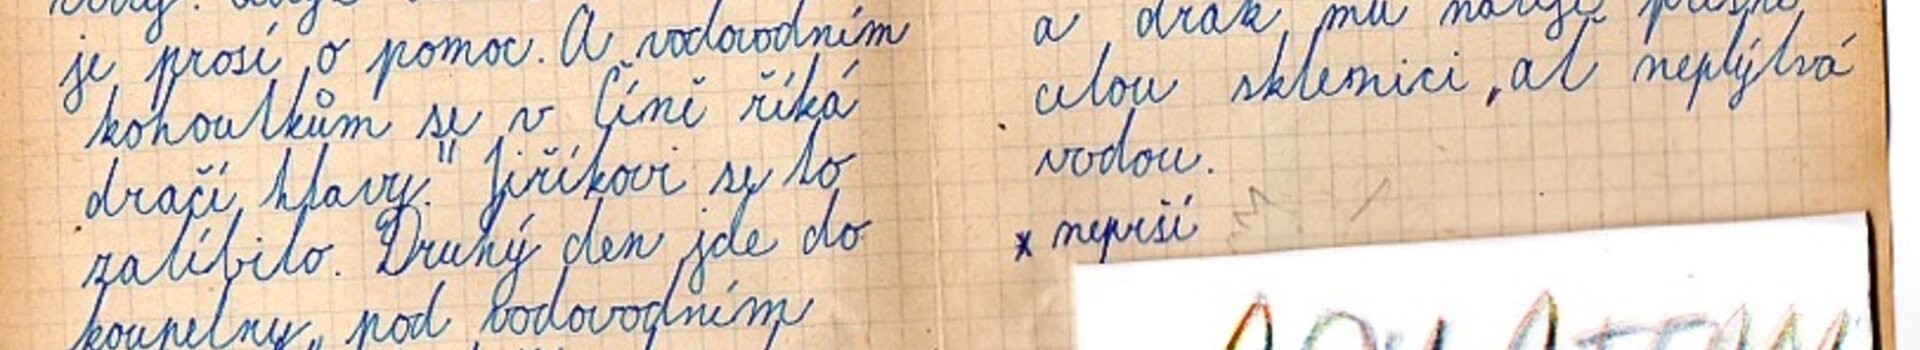 je prosí o pomoc. A vodovodním
kohoutkům se v Číně říká
dračí hlavy." Jiříkovi se to
zalíbilo. Druhý den jde do
koupelny, pod vodovodním
a drak mu naleje přesně
celou sklenici, ať neplýtvá
vodou.
x neprší